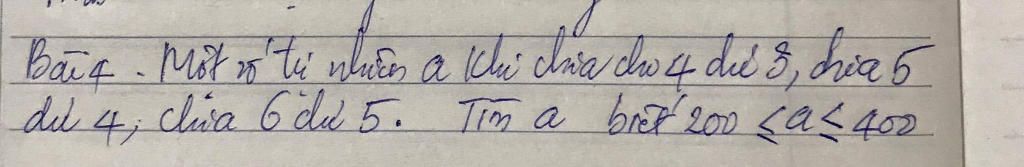 Bài 4. Một số tự nhiên a khi chia cho 4 dư 3, chia 5
dư 4; chia 6 dư 5. Tìm a biết 200 ≤ a ≤ 400